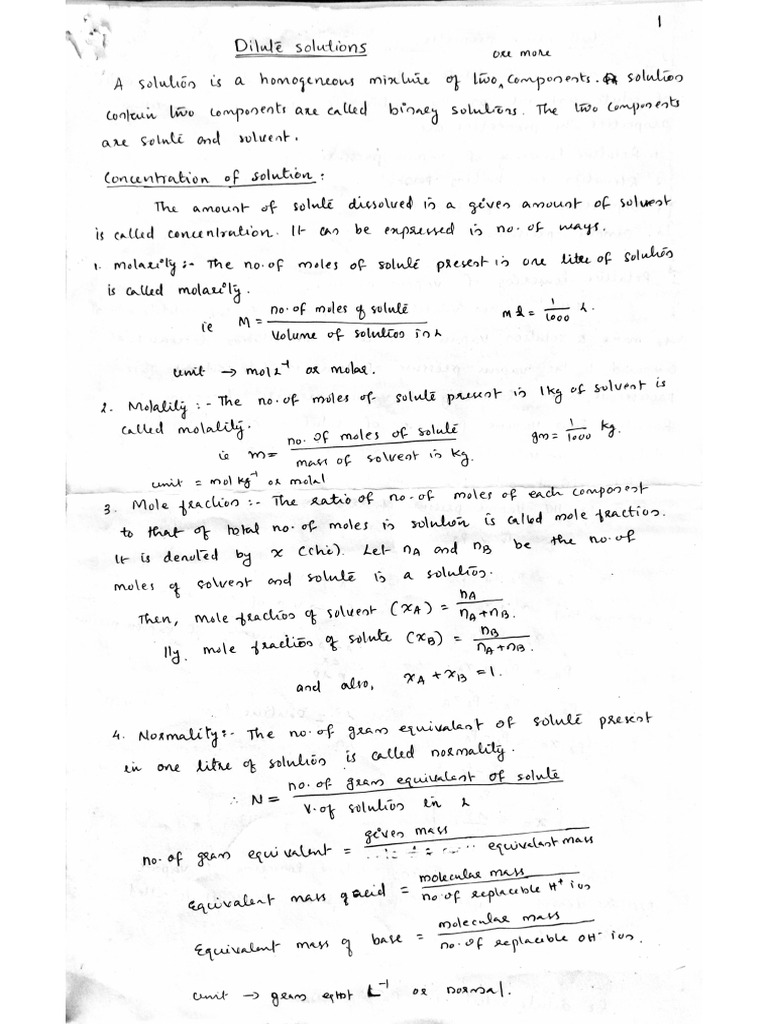 1
Dilute solutions
ore more
A solution is a homogeneous mixture of two components. A solution
contain two components are called binary solutions. The two components
are solute and solvent.
Concentration of solution :
The amount of solute dissolved in a given amount of solvent
is called concentration. It can be expressed in no. of ways.
1. Molarity :- The no. of moles of solute present in one litre of solution
is called molarity.
ie M = no. of moles of solute / Volume of solution in L    ml = 1/1000 L.
unit → mol L⁻¹ or molar.
2. Molality :- The no. of moles of solute present in 1kg of solvent is
called molality.
ie m = no. of moles of solute / mass of solvent in kg.    gm = 1/1000 kg.
unit = mol kg⁻¹ or molal
3. Mole fraction :- The ratio of no. of moles of each component
to that of total no. of moles in solution is called mole fraction.
It is denoted by x (chi). Let nA and nB be the no. of
moles of solvent and solute in a solution.
Then, mole fraction of solvent (xA) = nA / nA + nB.
lly. mole fraction of solute (xB) = nB / nA + nB.
and also, xA + xB = 1.
4. Normality :- The no. of gram equivalent of solute present
in one litre of solution is called normality.
∴ N = no. of gram equivalent of solute / V. of solution in L
no. of gram equivalent = given mass / equivalent mass
Equivalent mass of acid = molecular mass / no of replacible H⁺ ion
Equivalent mass of base = molecular mass / no. of replacible OH⁻ ion.
unit → gram eqtot L⁻¹ or normal.